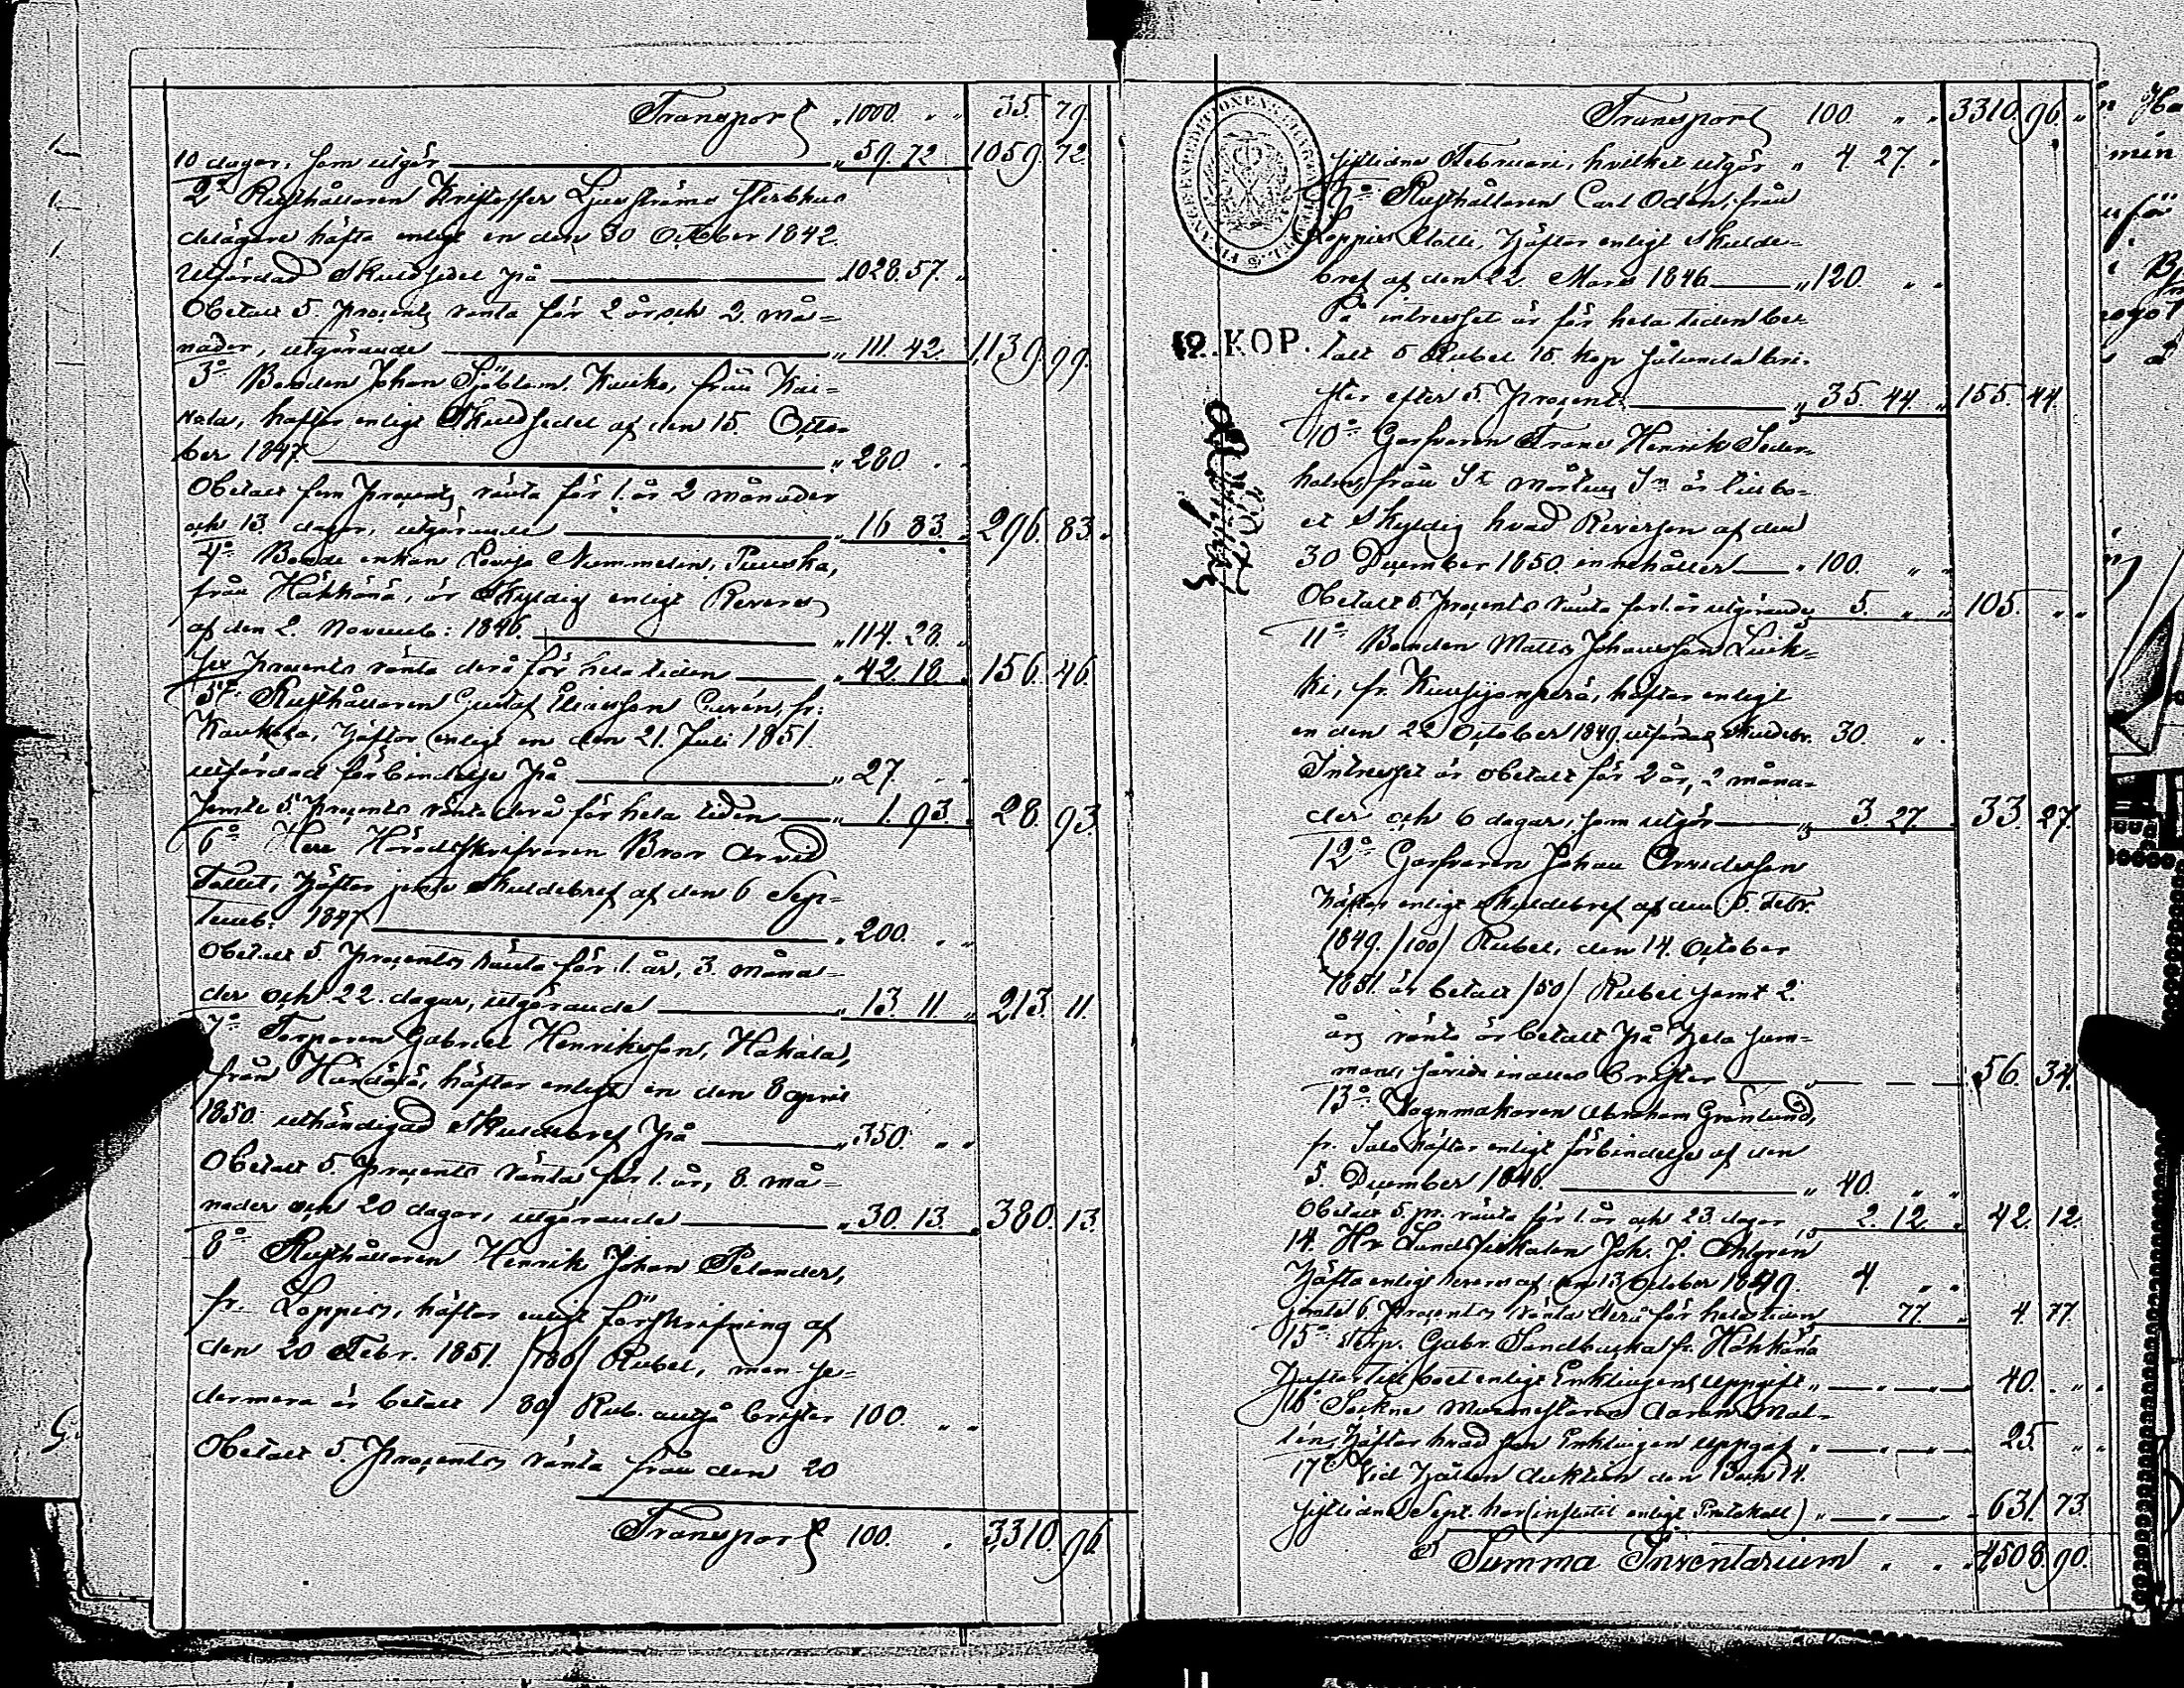 Transport „ 1000. „ „ 35. 79.
10 dagar, som utgör „ 59. 72 1059. 72.
2o Rusthållaren Kristoffer Ljusströms sterbhus
delägare häfta enligt en den 30 October 1842.
utfärdad Skuldsedel på „ 1028. 57. „
Obetalt 5. Procents ränta för 2 år och 2. må=
nader, utgörande „ 111. 42. 1,139. 99.
3o Bonden Johan Sjöblom Kauko, från Kai=
nola, häftar enligt Skuldsedel af den 15. Octo=
ber 1847. „ 280. „ „
Obetalt fem Procents ränta för 1. år 2 månader
och 13. dagar, utgörande „ 16 83. „ 296. 83. „
4o Bonde enkan Lovisa Nummelin,
från Häkkänä, är Skyldig enligt Revers
af den 2. Novemb: 1846. „ 114. 28. „
sex Procents ränta derå för hela tiden „ 42. 18. „ 156. 46.
5o Rusthållaren Gustaf Eliasson Curén, fr:
Kaukola, häftar enligt en den 21. Juli 1851.
utfärdad förbindelse på „ 27. „ „
Jemte 5 Procents ränta derå för hela tiden „ 1. 93. „ 28. 93
6o Herr Häradsskrifvaren Bror Arvid
häftar jemte Skuldebref af den 6 Sep=
temb: 1847 „ 200. „ „
Obetalt 5. Procents ränta för 1. år, 3. måna=
der och 22. dagar, utgörande „ 13. 11 „ 213. 11.
7o Torparen Gabriel Henriksson, Hakala,
från häftar enligt en den 8 april
1850. uthändigad Skuldebref på „ 350. „ „
Obetalt 5. Procents ränta för 1. år, 8. må=
nader och 20 dagar, utgörande „ 30. 13. „ 380. 13.
8o Rusthållaren Henrik Johan Selander,
fr. Loppis, häftar enligt förskrifning af
den 20 Febr. 1851. /180/ Rubel, men se=
dermera är betalt /80/ Rub. altså brister 100. „ „
Obetalt 5. Procents ränta från den 20
Transport 100. „ 3,310. 96.
Transport 100. „ „ 3310. 96. „
sistlidne Februari, hvilket utgör „ 4 27 „
9o Rusthållaren Carl Odén, från
Loppis häftar enligt Skulde=
bref af den 22. Mars 1846 „ 120. „ „
På intresset är för hela tiden be=
talt 5 Rubel 15 kop sålunda bri=
ster efter 5. Procent „ 35 44. „ 155. 44
12. KOP.
10o Garfvaren Frans Henrik Seder=
holm, från St Mårtens Sn är till bo=
et Skyldig hvad Reversen af den
30 December 1850. innehåller „ 100. „ „
Obetalt 5. Procents ränta för 1. år utgörande 5. „ „ 105. „ „
11o Bonden Matts Johansson
fr. häftar enligt
en den 22 October 1849 utfärdad Skuldebr. 30. „ „
Intresset är obetalt för 2 år, 2 måna=
der och 6 dagar, som utgör „ 3. 27. 33. 27.
12o Garfvaren Johan Arvidsson
häftar enligt Skuldebref af den 5. Febr.
1849. /100/ Rubel, den 14. October
1851. är betalt /50/ Rubel samt 2.
års ränta är betalt på hela sum=
man, således brister „ 56. 34.
13o Vagnmakaren Abraham Grönlund,
fr. Salo häftar enligt förbindelse af den
5. December 1846. „ 40. „ „
Obetalt 5. pr. ränta för 1. år och 23 dagar „ 2. 12 „ 42. 12.
14. Hr Landsfiskalen Joh. J. Ahlgrén
Häfta enligt revers af den 13 October 1849. 4. „ „
jemte 6. Procents ränta derå för hela tiden 77. „ 4. 77.
15o Torp. Gabr. fr. Häkkänä
häftar till boet enligt Enklingens uppgift „ „ „ 40. „ „
16o Sockne Aaron Mal=
lén, häftar hvad som Enklingen uppgaf „ „ „ 25. „ „
17o Vid hållen Auktion den 13 och 14.
sistlidne Sept. har influtit enligt Protokoll) „ „ 631. 73.
Summa Inventarium „ „ „ 4,508. 90.